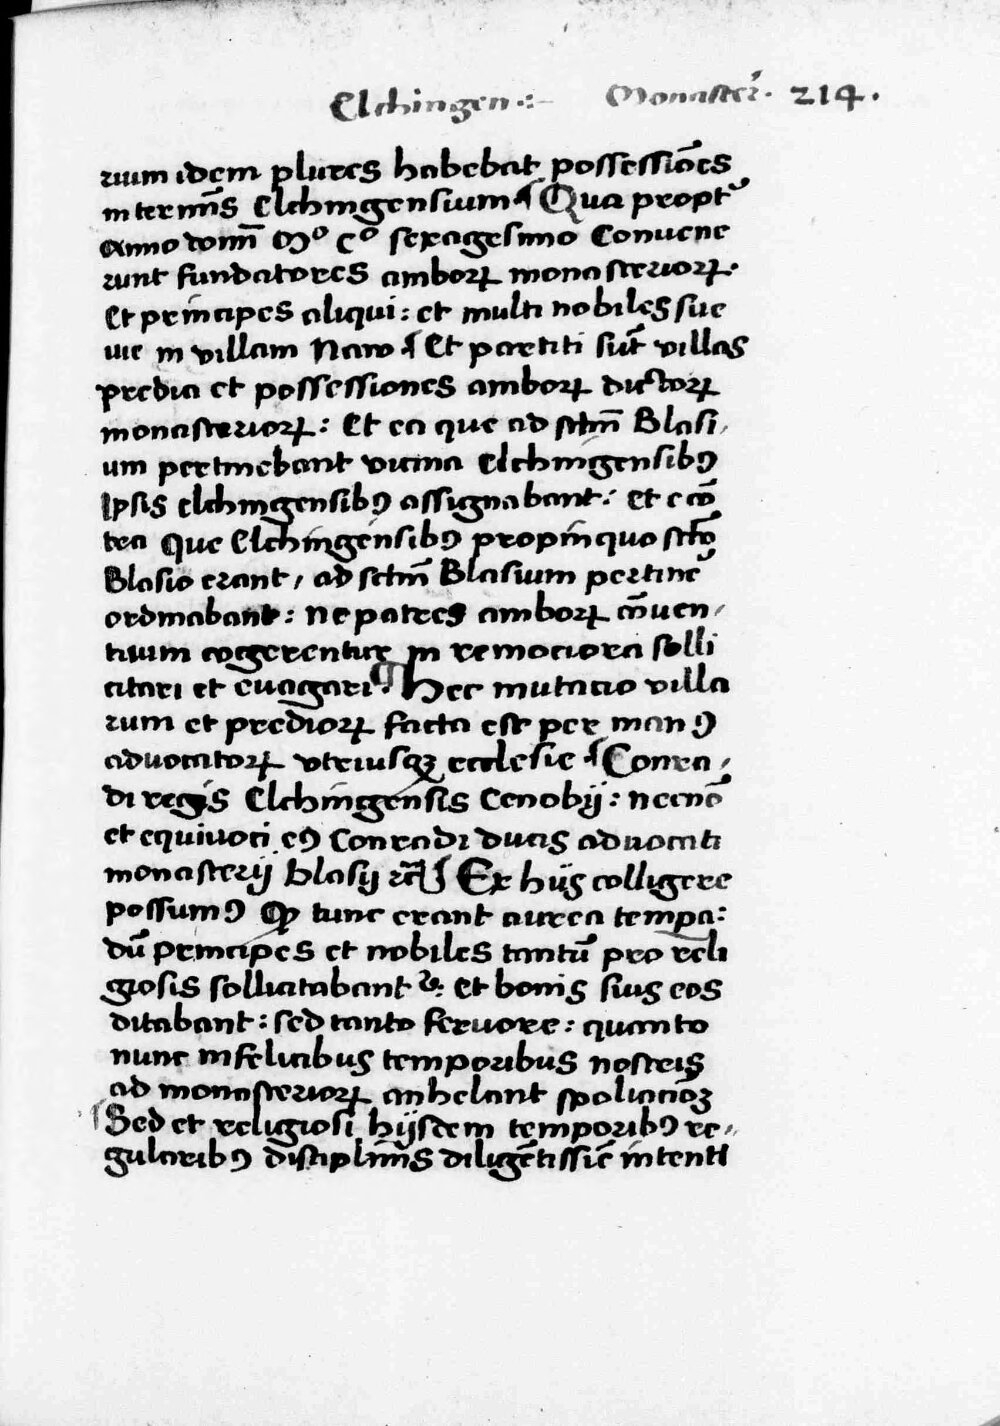 Elchingen :– Monaster̄. 214.
rium idem plures habebat possessiōes
in terminīs Elchingensium ¶ Qua propt̄
Anno domī Mº Cº sexagesimo Convene
runt fundatores amborꝝ monasteriorꝝ.
Et principes aliqui : et multi nobiles sue
vie in villam Naw ¶ Et partiti sūt villas
predia et possessiones amborꝝ dictorꝝ
monasteriorꝝ : Et ea que ad sctm̄ Blasi,
um pertinebant vicina Elchingensibꝰ
Ipsis elchingensibꝰ assignabant : et ecō
tra que Elchingensibꝰ propinquo sctō
Blasio erant, ad sctm̄ Blasium pertinē
ordinabant : ne patres amborꝝ cōven,
tuum cogerentur in remociora solli
citari et evagari ¶ Hec mutacio villa
rum et prediorꝝ facta est per manꝰ
advocatorꝝ utriusqꝫ ecclesie ¶ Conra,
di regis Elchingensis Cenobij : necnō
et equivoci eꝰ Conradi ducis advocati
monasterij blasij rc̄ ¶ Ex hijs colligere
possumꝰ ꝙ tunc erant aurea tempa :
dū principes et nobiles tantū pro reli
giosis sollicitabant᷑ : et bonis suis eos
ditabant : sed tanto fervore : quanto
nunc infelicibus temporibus nostris
ad monasteriorꝝ anhelant spoliacioꝫ
¶ Sed et religiosi hijsdem temporibꝰ re,,
gularibꝰ disciplinīs diligētissiē intenti